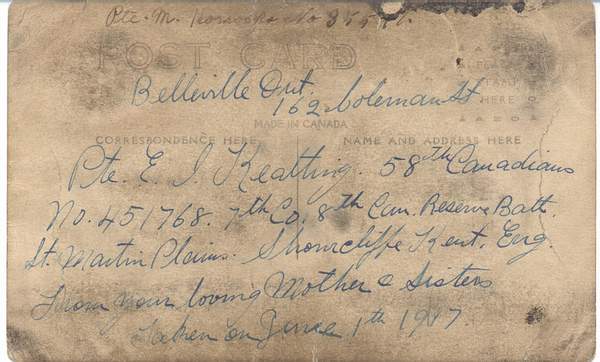 Pte. M. No 355
POST CARD
Belleville Ont.
162 Coleman St
PLACE
STAMP
HERE
MADE IN CANADA
CORRESPONDENCE HERE NAME AND ADDRESS HERE
Pte. E. J. Keatting. 58th Canadians
No. 451768. 7th Co. 8th Can. Reserve Batt.
St. Martin Plains. Shorncliffe Kent. Eng.
From your loving Mother & Sisters
Taken on June 1th 1917